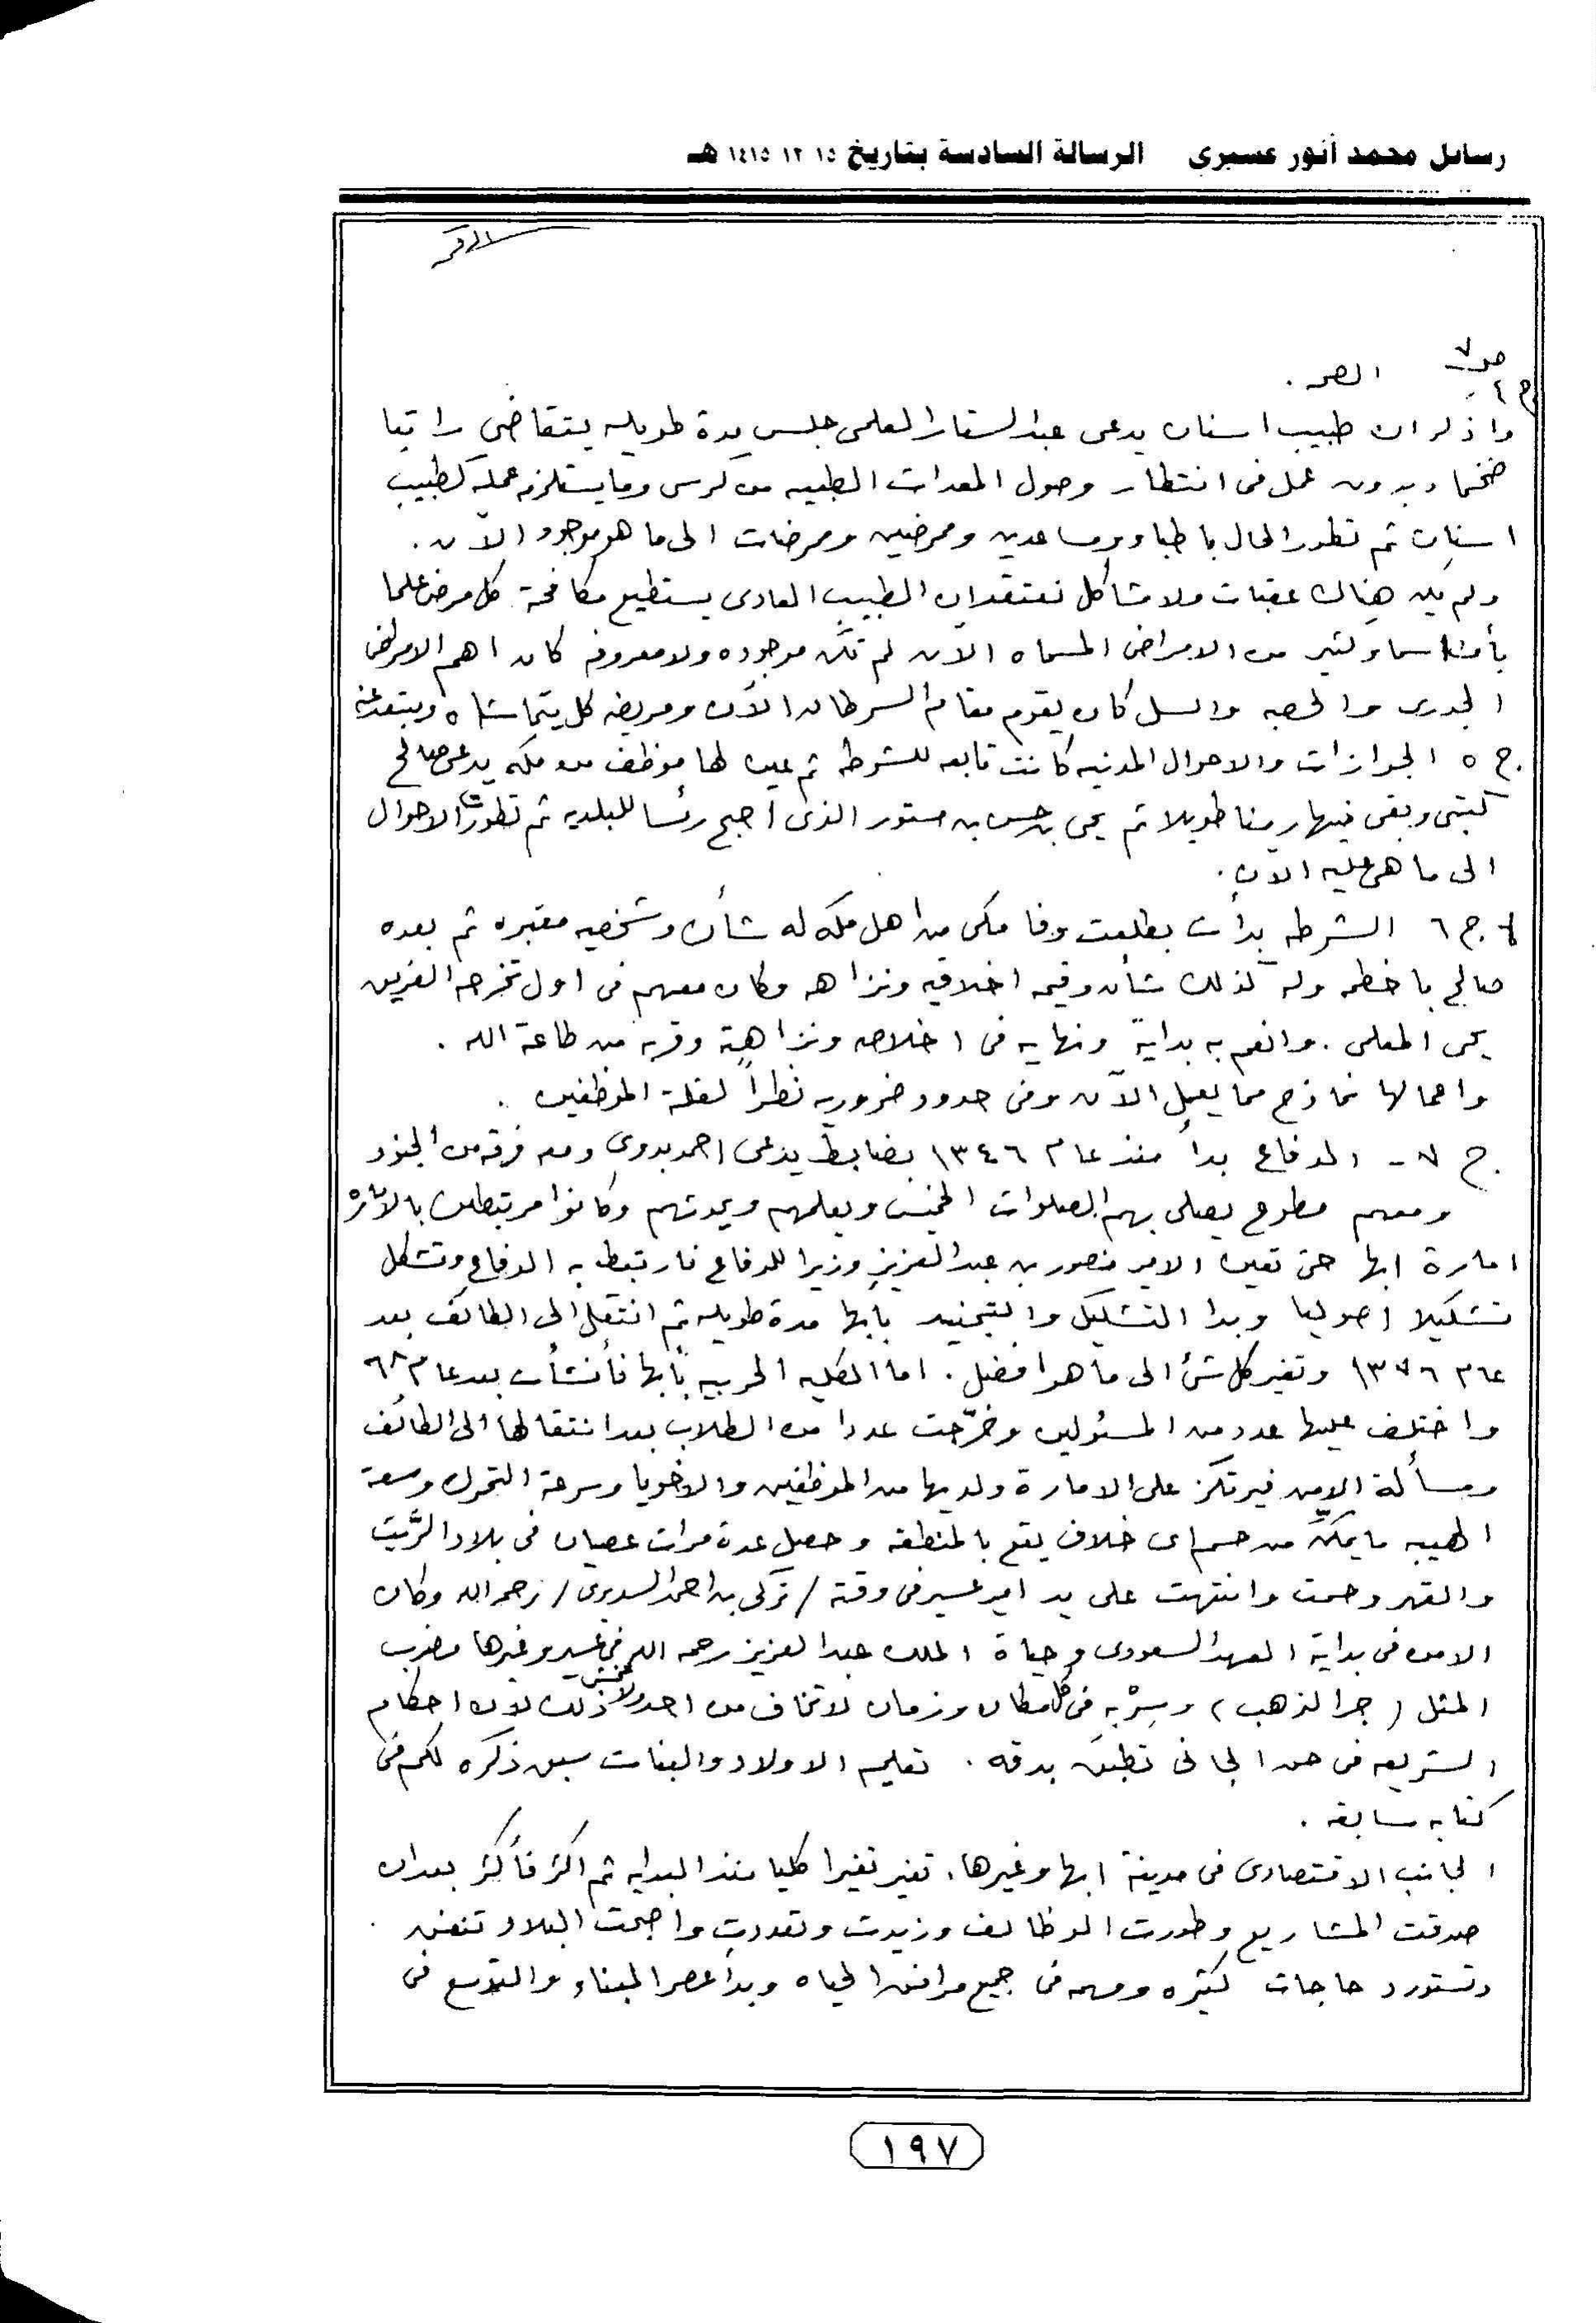 رسائل محمد أنور عسيري الرسالة السادسة بتاريخ ١٥ ١٢ ١٤١٥ هـ
ص ٧
ج ٤ - الصحه .
واذكر ان طبيب اسنان يدعى عبدالستار العلمى جلس مدة طويله يتقاضى راتبا
ضخما وبدون عمل فى انتظار وصول المعدات الطبيه من كرسى وما يستلزمه عمله كطبيب
اسنان ثم تطور الحال باطباء ومساعدين وممرضين وممرضات الى ما هو موجود الآن .
ولم يكن هناك عقبات ولا مشاكل نعتقد ان الطبيب العادى يستطيع مكافحة كل مرض علما
بأن اسماء كثير من الامراض المسماه الآن لم تكن موجوده ولا معروفه كان اهم الامراض
الجدرى والحصبه والسل كان يقوم مقام السرطان الآن ومريضه كل يتحاشاه ويبتعد عنه
ج ٥ الجوازات والاحوال المدنيه كانت تابعه للشرطه ثم عين لها موظف من مكه يدعى صالح
كتبى وبقى فيها زمنا طويلا ثم يحى بن حسن بن مستور الذى اصبح رئسا للبلديه ثم تطورت الاحوال
الى ما هى عليه الآن .
ج ٦ الشرطه بدأت بطلعت وفا مكى من اهل مكه له شأن وشخصيه معتبره ثم بعده
صالح باخطمه وله كذلك شأن وقيمه اخلاقيه ونزاهه وكان معهم فى اول تخرجه الفريق
يحى المعلمى . وانعم به بدايةً ونهايه فى اخلاصه ونزاهته وقربه من طاعة الله .
واعمالها نماذج مما يعمل الآن وفى حدود ضروريه نظراً لقلة الموظفين .
ج ٧ - الدفاع بدأ منذ عام ١٣٤٦ بضابط يدعى احمد بدوى ومعه فرقه من الجنود
ومعهم مطوع يصلى بهم الصلوات الخمس ويعلمهم ويحدثهم وكانوا مرتبطين
امارة ابها حتى تعين الامير منصور بن عبدالعزيز وزيرا للدفاع فارتبط به الدفاع وتشكل
تشكيلا اصوليا وبدا التشكيل والتجنيد بأبها مدة طويله ثم انتقل الى الطائف بعد
عام ١٣٧٦ وتغير كل شئ الى ما هو افضل . اما الكليه الحربيه بأبها فأنشأت بعد عام ٦٨
واختلف عليها عدد من المسئولين وخرّجت عددا من الطلاب بعد انتقالها الى الطائف
ومسألة الامن فيرتكز على الامارة ولديها من الموظفين والاخويا وسرعة التحرك وسعة
الهيبه ما يمكّن من حسم اى خلاف يقع بالمنطقه وحصل عدة مرات عصيان فى بلاد الرَّيث
والقهر وحسمت وانتهت على يد امير عسير فى وقته / تركى بن احمد السديرى / رحمه الله وكان
الامن فى بداية العهد السعودى وحياة الملك عبدالعزيز رحمه الله فى عسير وغيرها مضرب
المثل ( جر الذهب ) وسِرْ به فى كل مكان وزمان لا تخاف من احد ولا تخشى ذلك لأن احكام
الشريعه فى حق الجانى تطبق بدقه . تعليم الاولاد والبنات سبق ذكره لكم فى
كتابه سابقه .
الجانب الاقتصادى فى مدينة ابها وغيرها . تغير تغيرا كليا منذ البدايه ثم اكثر فأكثر بعد ان
صدقت المشاريع وطورت الوظائف وزيدت وتعددت واصبحت البلاد تنفق
وتستورد حاجات كثيره ومهمه فى جميع مرافق الحياه وبدأ عصر البناء والتوسع فى
١٩٧